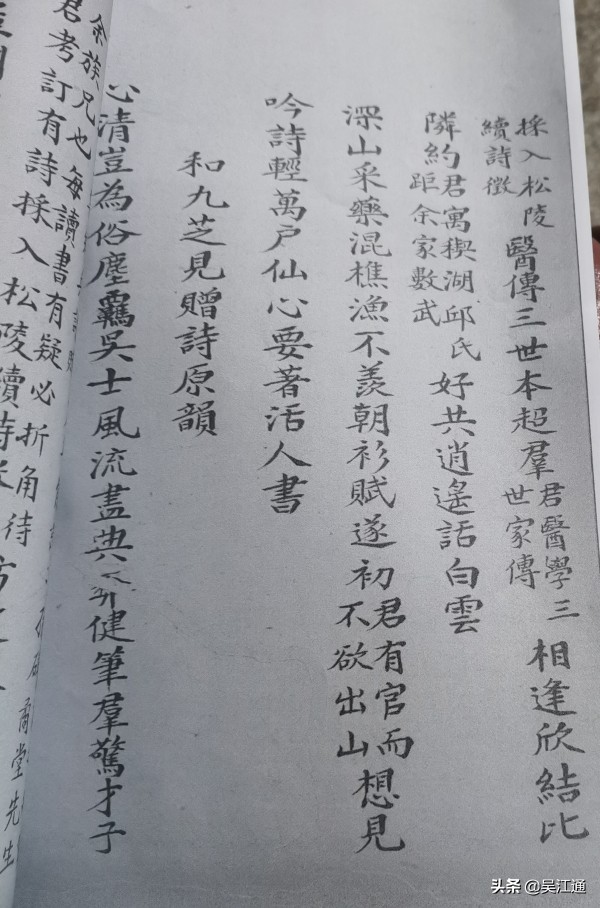 採入松陵
續詩徵
醫傳三世本超羣
君醫學三
世家傳
相逢欣結比
隣約君寓稧湖邱氏
距余家數武
好共逍遙話白雲
深山采藥混樵漁不羨朝衫賦遂初
君有官而
不欲出山
想見
吟詩輕萬戶仙心要著活人書
和九芝見贈詩原韻
心清豈為俗塵羈吳士風流盡典健筆羣驚才子
余族兄也每讀書有疑必折角待
君考訂有詩採入松陵續詩
堂先生
头条 @吴江通